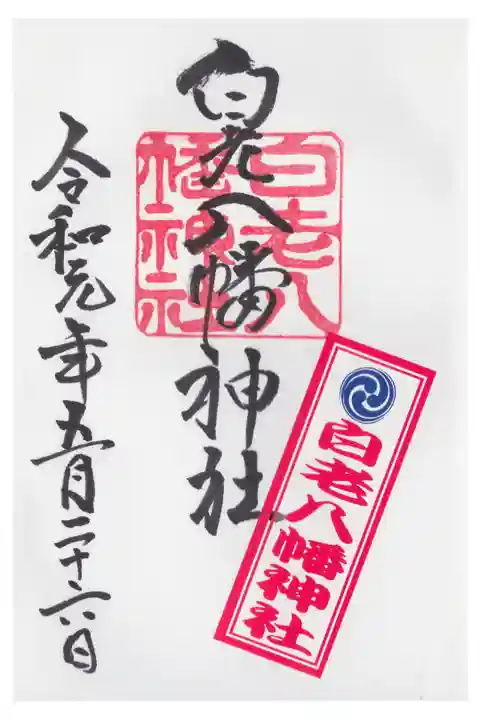 白老八幡神社
白老八幡神社
白老八幡神社
令和元年五月二十六日